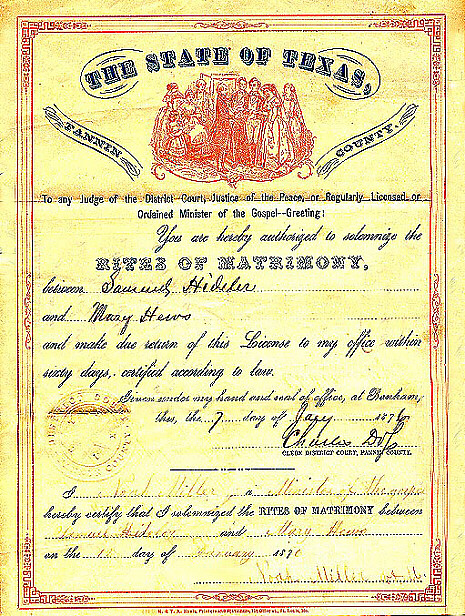 THE STATE OF TEXAS,
FANNIN COUNTY.
To any Judge of the District Court, Justice of the Peace, or Regularly Licensed or
Ordained Minister of the Gospel—Greeting:
You are hereby authorized to solemnize the
RITES OF MATRIMONY,
between Samuel
and Mary Hews
and make due return of this License to my office within
sixty days, certified according to law.
Given under my hand and seal of office, at Bonham,
this, the 7 day of Jany 1876
Charles
CLERK DISTRICT COURT, FANNIN COUNTY.
I Noah Miller, a Minister of the gospel
hereby certify that I solemnized the RITES OF MATRIMONY between
Samuel and Mary Hews
on the day of 187
Noah Miller